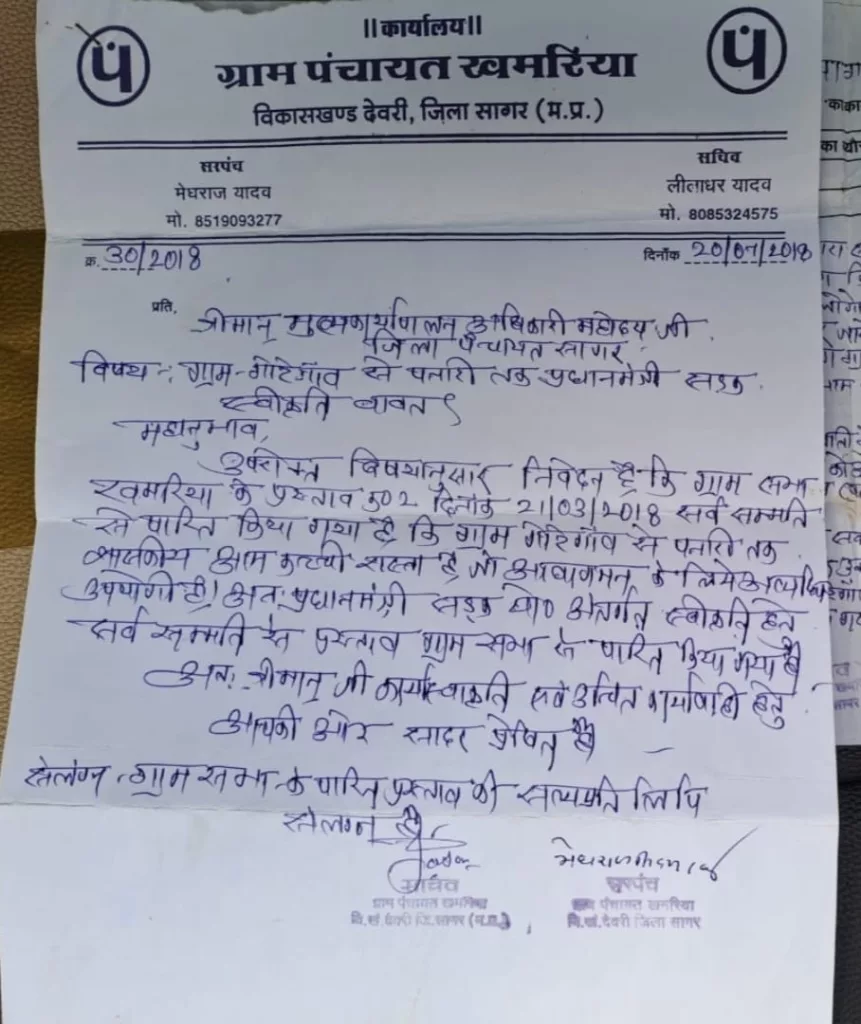 ॥कार्यालय॥
पं ग्राम पंचायत खमरिया पं
विकासखण्ड देवरी, जिला सागर (म.प्र.)
सरपंच
मेघराज यादव
मो. 8519093277
सचिव
लीलाधर यादव
मो. 8085324575
क्र. 30/2018
दिनाँक 20/07/2018
प्रति,
श्रीमान् मुख्यकार्यपालन अधिकारी महोदय जी
जिला पंचायत सागर
विषय :- ग्राम-गोरेगाँव से पनारी तक प्रधानमंत्री सड़क
स्वीकृति बावत्
महानुभाव,
उपरोक्त विषयानुसार निवेदन है कि ग्राम सभा
खमरिया के प्रस्ताव क्र०2 दिनांक 21/03/2018 सर्व सम्मति
से पारित किया गया है कि ग्राम गोरेगाँव से पनारी तक
शासकीय आम कच्चा रास्ता है जो आवागमन के लिये
उपयोगी है। अतः प्रधानमंत्री सड़क यो० अंतर्गत स्वीकृति हेतु
सर्व सम्मति से प्रस्ताव ग्राम सभा के पारित किया गया है
अतः श्रीमान् जी कार्यस्वीकृति एवं उचित कार्यवाही हेतु
आपकी ओर सादर प्रेषित है
संलग्न - ग्राम सभा के पारित प्रस्ताव की सत्यप्रति लिपि
संलग्न है
सचिव
ग्राम पंचायत खमरिया
वि.खं.देवरी जि.सागर (म.प्र.)
मेघराज
सरपंच
ग्राम पंचायत खमरिया
वि.खं.देवरी जिला सागर